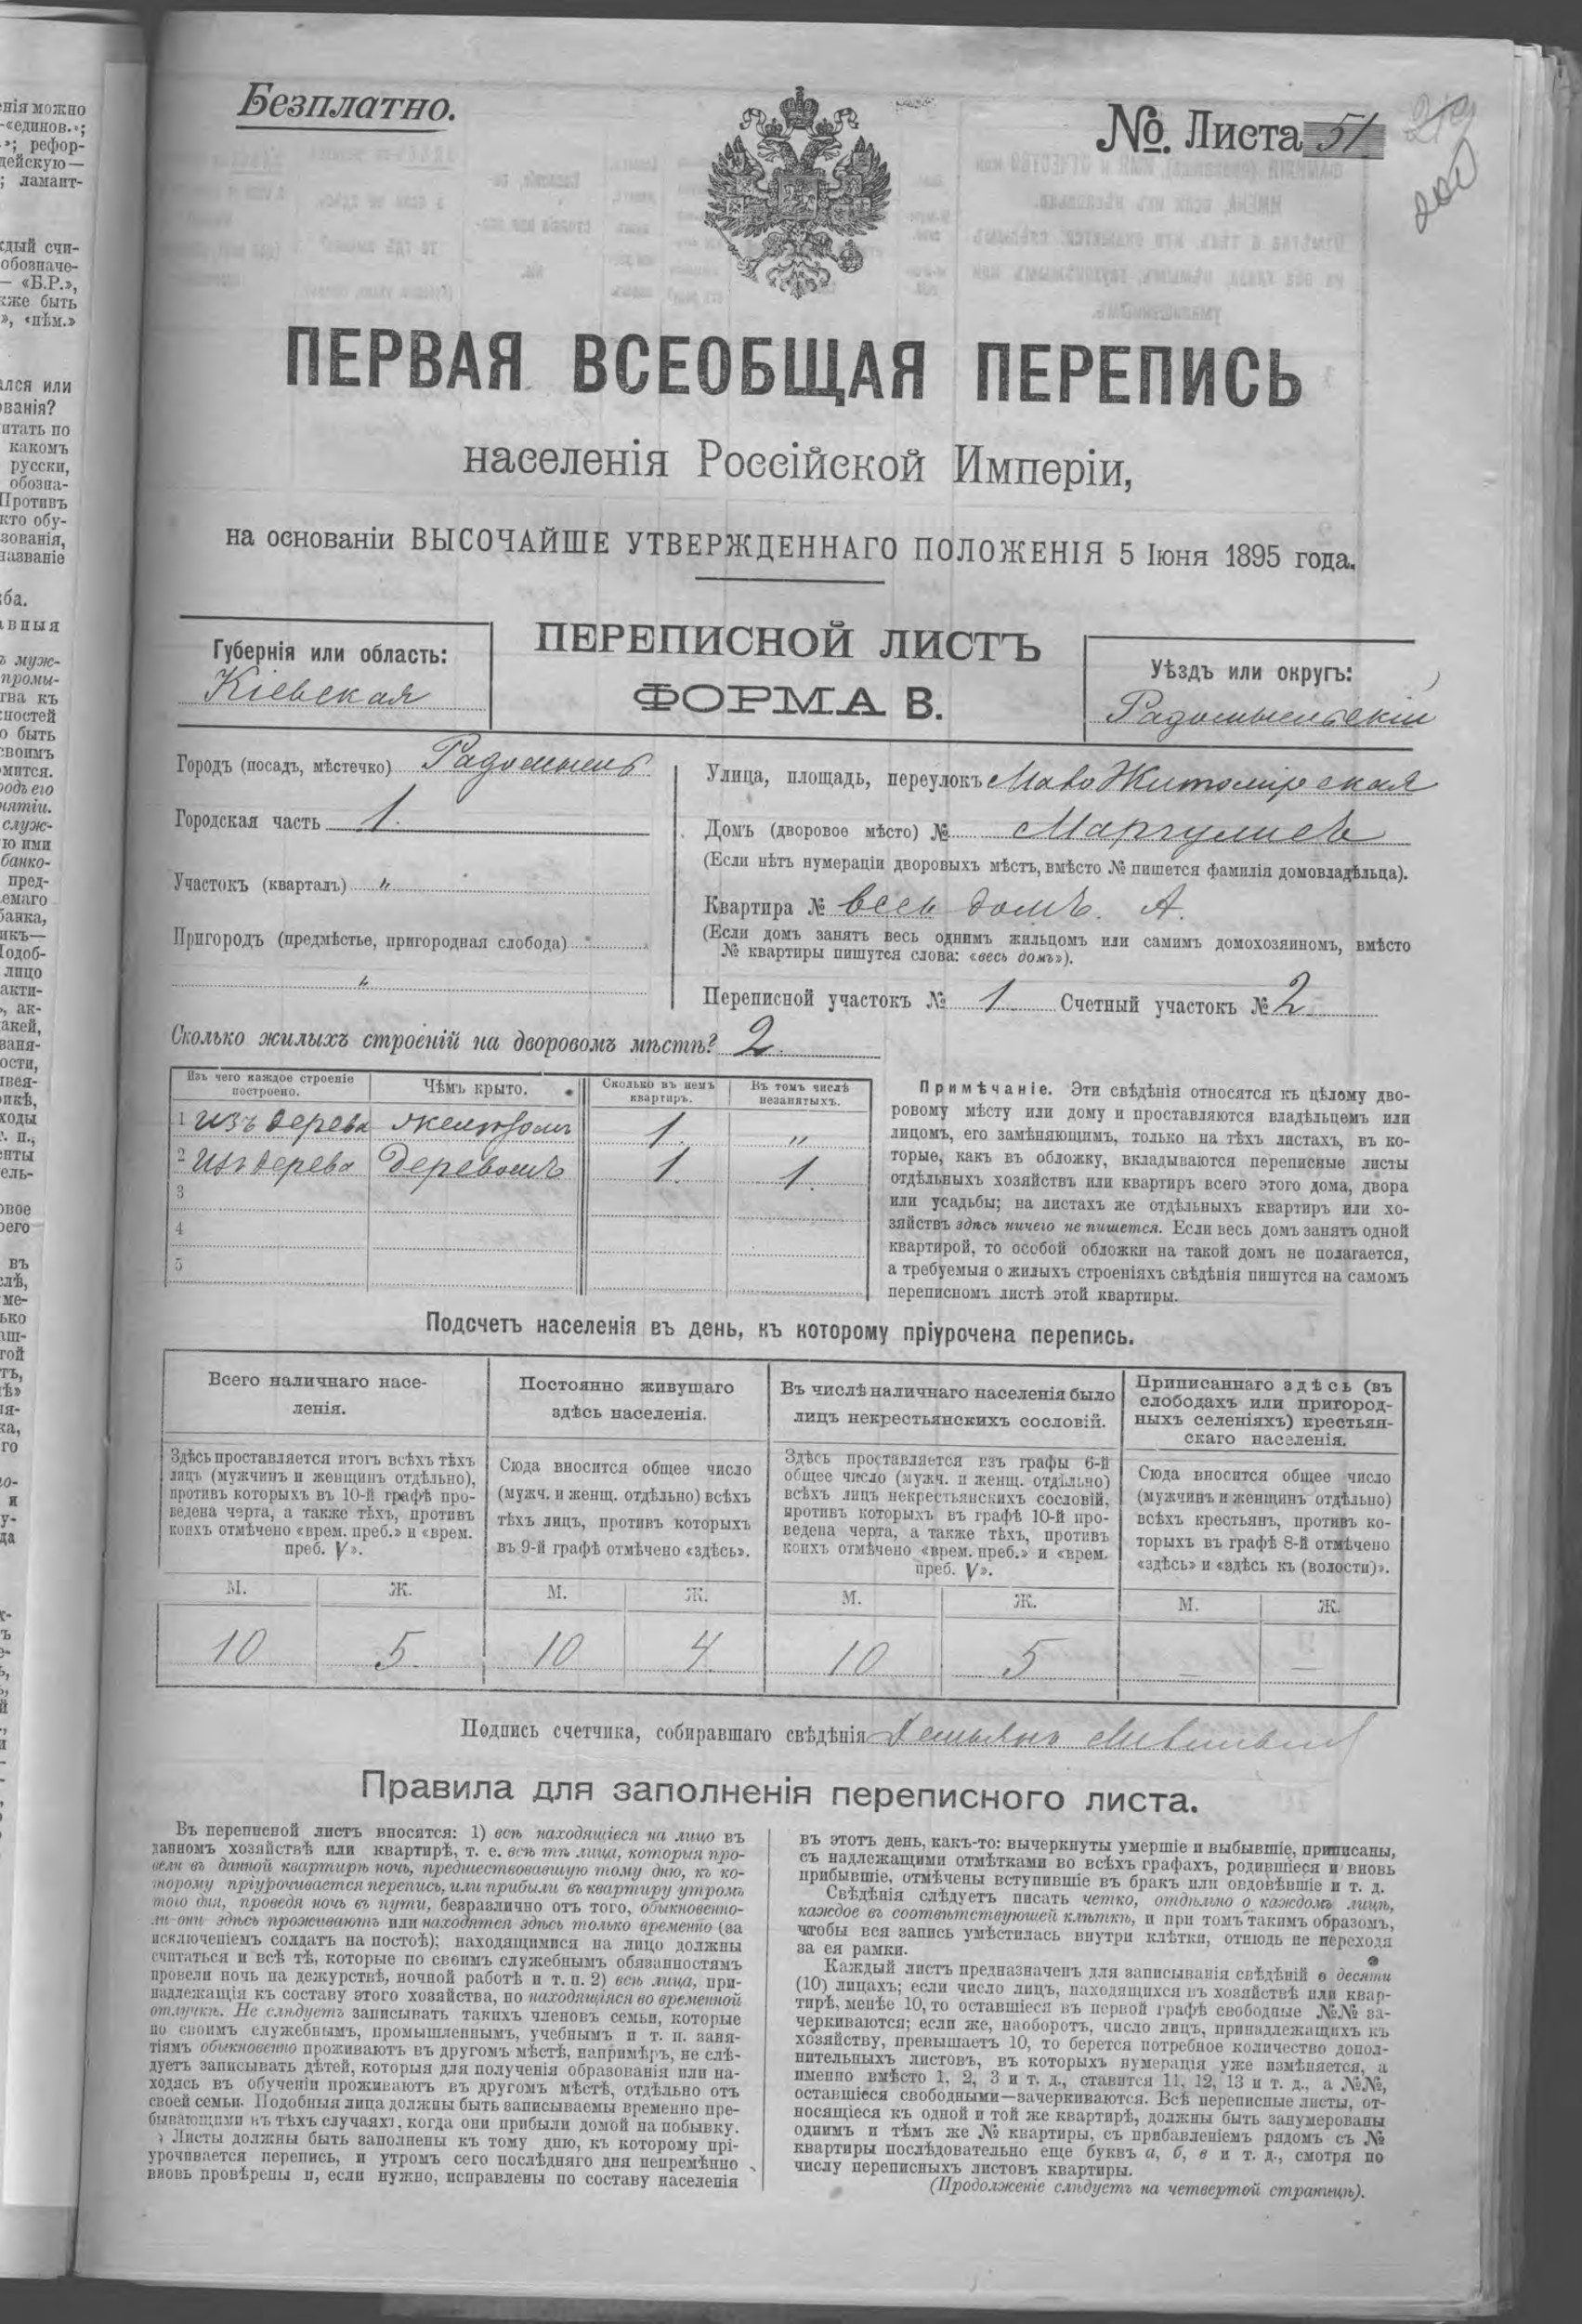 Безплатно.
№. Листа 51
ПЕРВАЯ ВСЕОБЩАЯ ПЕРЕПИСЬ
населенія Россійской Имперіи,
на основаніи ВЫСОЧАЙШЕ УТВЕРЖДЕННАГО ПОЛОЖЕНІЯ 5 Іюня 1895 года.
ПЕРЕПИСНОЙ ЛИСТЪ
ФОРМА В.
Губернія или область:
Кіевская
Уѣздъ или округъ:
Радомысльскій
Городъ (посадъ, мѣстечко) Радомысль
Городская часть 1.
Участокъ (кварталъ) „
Пригородъ (предмѣстье, пригородная слобода)
„
Улица, площадь, переулокъ Мало Житомірская
Домъ (дворовое мѣсто) № Маргулисъ
(Если нѣтъ нумераціи дворовыхъ мѣстъ, вмѣсто № пишется фамилія домовладѣльца).
Квартира № весь домъ. А.
(Если домъ занятъ весь однимъ жильцомъ или самимъ домохозяиномъ, вмѣсто
№ квартиры пишутся слова: «весь домъ»).
Переписной участокъ № 1 Счетный участокъ № 2
Сколько жилыхъ строеній на дворовомъ мѣстѣ? 2.
Изъ чего каждое строеніе
построено.
Чѣмъ крыто.
Сколько въ немъ
квартиръ.
Въ томъ числѣ
незанятыхъ.
1 изъ дерева желѣзомъ 1. „
2 изъ дерева деревомъ 1. 1.
3
4
5
Примѣчаніе. Эти свѣдѣнія относятся къ цѣлому дво-
ровому мѣсту или дому и проставляются владѣльцемъ или
лицомъ, его замѣняющимъ, только на тѣхъ листахъ, въ ко-
торые, какъ въ обложку, вкладываются переписные листы
отдѣльныхъ хозяйствъ или квартиръ всего этого дома, двора
или усадьбы; на листахъ же отдѣльныхъ квартиръ или хо-
зяйствъ здѣсь ничего не пишется. Если весь домъ занятъ одной
квартирой, то особой обложки на такой домъ не полагается,
а требуемыя о жилыхъ строеніяхъ свѣдѣнія пишутся на самомъ
переписномъ листѣ этой квартиры.
Подсчетъ населенія въ день, къ которому пріурочена перепись.
Всего наличнаго насе-
ленія.
Здѣсь проставляется итогъ всѣхъ тѣхъ
лицъ (мужчинъ и женщинъ отдѣльно),
противъ которыхъ въ 10-й графѣ про-
ведена черта, а также тѣхъ, противъ
коихъ отмѣчено «врем. преб.» и «врем.
преб. V».
Постоянно живущаго
здѣсь населенія.
Сюда вносится общее число
(мужч. и женщ. отдѣльно) всѣхъ
тѣхъ лицъ, противъ которыхъ
въ 9-й графѣ отмѣчено «здѣсь».
Въ числѣ наличнаго населенія было
лицъ некрестьянскихъ сословій.
Здѣсь проставляется изъ графы 6-й
общее число (мужч. и женщ. отдѣльно)
всѣхъ лицъ некрестьянскихъ сословій,
противъ которыхъ въ графѣ 10-й про-
ведена черта, а также тѣхъ, противъ
коихъ отмѣчено «врем. преб.» и «врем.
преб. V».
Приписаннаго здѣсь (въ
слободахъ или пригород-
ныхъ селеніяхъ) крестьян-
скаго населенія.
Сюда вносится общее число
(мужчинъ и женщинъ отдѣльно)
всѣхъ крестьянъ, противъ ко-
торыхъ въ графѣ 8-й отмѣчено
«здѣсь» и «здѣсь къ (волости)».
М. Ж. М. Ж. М. Ж. М. Ж.
10 5 10 4 10 5 — —
Подпись счетчика, собиравшаго свѣдѣнія
Правила для заполненія переписного листа.
Въ переписной листъ вносятся: 1) всѣ находящіеся на лицо въ
данномъ хозяйствѣ или квартирѣ, т. е. всѣ тѣ лица, которыя про-
вели въ данной квартирѣ ночь, предшествовавшую тому дню, къ ко-
торому пріурочивается перепись, или прибыли въ квартиру утромъ
того дня, проведя ночь въ пути, безразлично отъ того, обыкновенно-
ли они здѣсь проживаютъ или находятся здѣсь только временно (за
исключеніемъ солдатъ на постоѣ); находящимися на лицо должны
считаться и всѣ тѣ, которые по своимъ служебнымъ обязанностямъ
провели ночь на дежурствѣ, ночной работѣ и т. п. 2) всѣ лица, при-
надлежащія къ составу этого хозяйства, но находящіяся во временной
отлучкѣ. Не слѣдуетъ записывать такихъ членовъ семьи, которые
по своимъ служебнымъ, промышленнымъ, учебнымъ и т. п. заня-
тіямъ обыкновенно проживаютъ въ другомъ мѣстѣ, напримѣръ, не слѣ-
дуетъ записывать дѣтей, которыя для полученія образованія или на-
ходясь въ обученіи проживаютъ въ другомъ мѣстѣ, отдѣльно отъ
своей семьи. Подобныя лица должны быть записываемы временно пре-
бывающими въ тѣхъ случаяхъ, когда они прибыли домой на побывку.
Листы должны быть заполнены къ тому дню, къ которому прі-
урочивается перепись, и утромъ сего послѣдняго дня непремѣнно
вновь провѣрены и, если нужно, исправлены по составу населенія
въ этотъ день, какъ-то: вычеркнуты умершіе и выбывшіе, приписаны,
съ надлежащими отмѣтками во всѣхъ графахъ, родившіеся и вновь
прибывшіе, отмѣчены вступившіе въ бракъ или овдовѣвшіе и т. д.
Свѣдѣнія слѣдуетъ писать четко, отдѣльно о каждомъ лицѣ,
каждое въ соотвѣтствующей клѣткѣ, и при томъ такимъ образомъ,
чтобы вся запись умѣстилась внутри клѣтки, отнюдь не переходя
за ея рамки.
Каждый листъ предназначенъ для записыванія свѣдѣній о десяти
(10) лицахъ; если число лицъ, находящихся въ хозяйствѣ или квар-
тирѣ, менѣе 10, то оставшіеся въ первой графѣ свободные №№ за-
черкиваются; если же, наоборотъ, число лицъ, принадлежащихъ къ
хозяйству, превышаетъ 10, то берется потребное количество допол-
нительныхъ листовъ, въ которыхъ нумерація уже измѣняется, а
именно вмѣсто 1, 2, 3 и т. д., ставится 11, 12, 13 и т. д., а №№,
оставшіеся свободными—зачеркиваются. Всѣ переписные листы, от-
носящіеся къ одной и той же квартирѣ, должны быть занумерованы
однимъ и тѣмъ же № квартиры, съ прибавленіемъ рядомъ съ №
квартиры послѣдовательно еще буквъ а, б, в и т. д., смотря по
числу переписныхъ листовъ квартиры.
(Продолженіе слѣдуетъ на четвертой страницѣ).